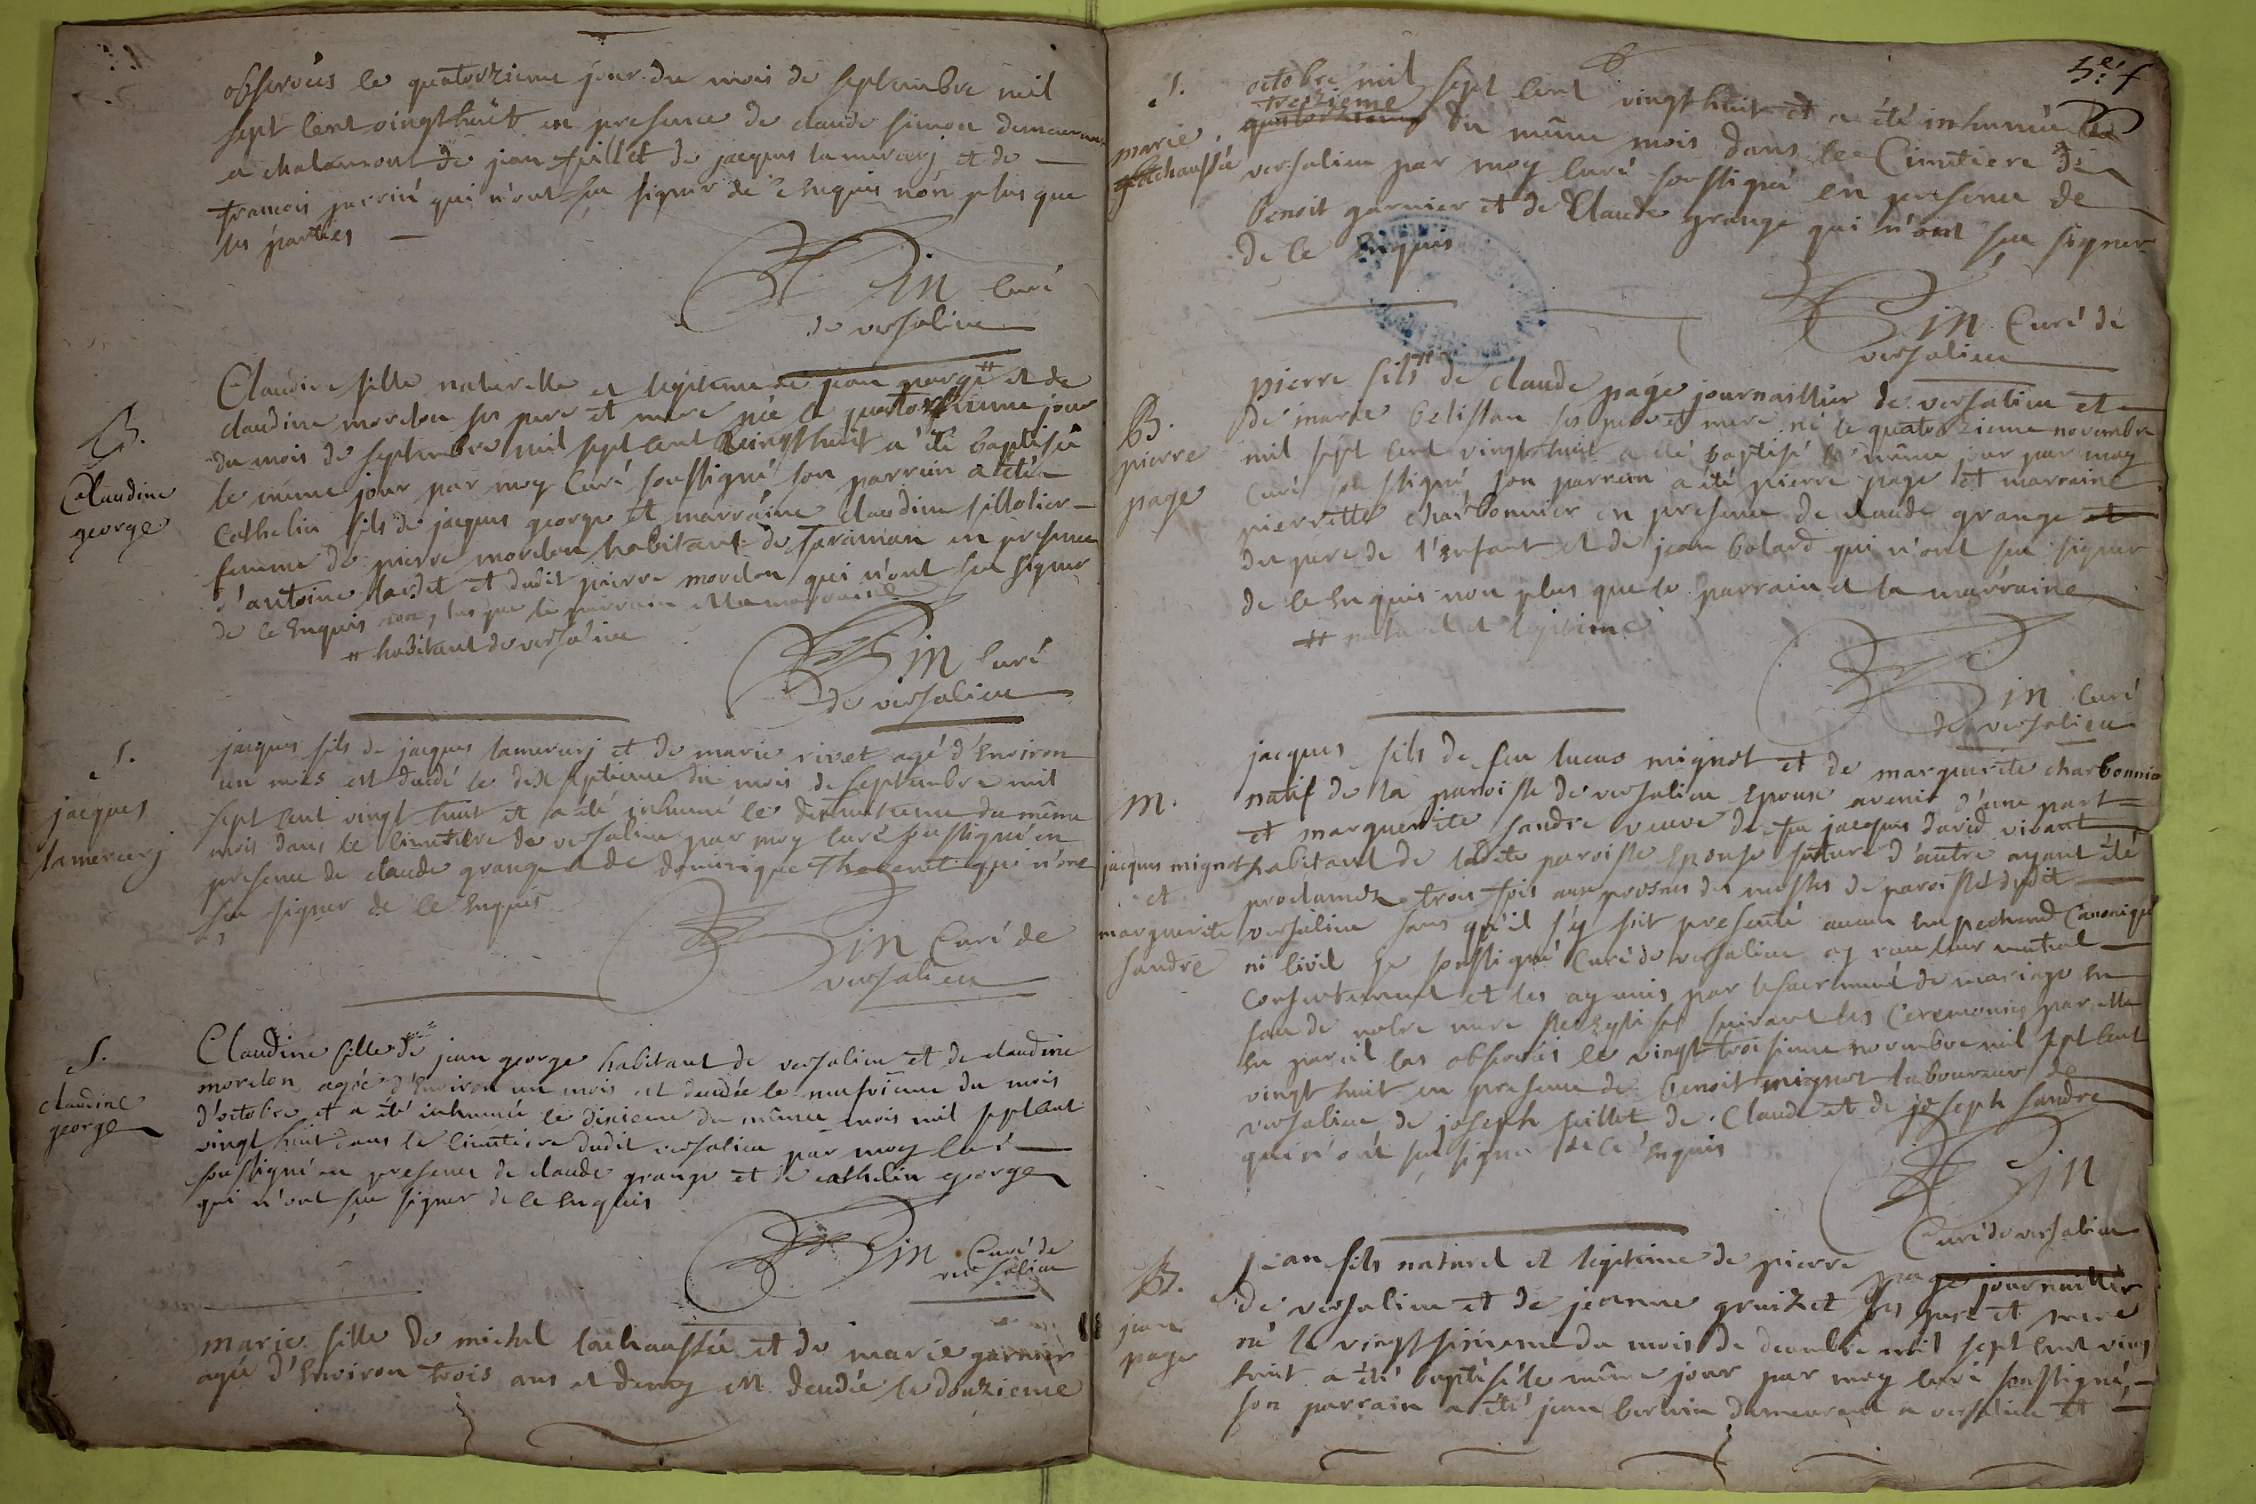 observées le quatorzieme jour du mois de septembre mil
sept cent vingt huit en presence de claude simon demeurant
a chalamont de jean fillet de jacques lamercerj et de
francois perriné qui n'ont sçu signer de ce enquis non plus que
les parties
Gin curé
de versalieu
B.
Claudine
george
Claudine fille naturelle et legitime de jean george # et de
claudine morelon ses pere et mere née le quatorzieme jour
du mois de septembre mil sept cent vingt huit a été baptisée
le même jour par moy Curé soussigné son parrain a été
Cathelin fils de jacques george et marraine claudine
femme de pierre morelon habitant de en presence
d'antoine et dudit pierre morelon qui n'ont sçu signer
de ce enquis non plus que le parrain et la marraine
# habitant de versalieu
Gin curé
de versalieu
S.
jacques
lamercerj
jacques fils de jacques lamercerj et de marie rivet agé d'Environ
un mois est decedé le dix septieme du mois de septembre mil
sept cent vingt huit et a été inhumé le dixhuitieme du même
mois dans le cimetiere de versalieu par moy curé soussigné en
presence de claude grange et de dominique Thevenet qui n'ont
sçu signer de ce Enquis
Gin Curé de
versalieu
S.
claudine
george
Claudine fille de jean george habitant de versalieu et de claudine
morelon agée d'Environ un mois est decedée le neufvieme du mois
d'octobre et a été inhumée le dixieme du même mois mil sept cent
vingt huit dans le cimetiere dudit versalieu par moy curé
soussigné en presence de claude grange et de cathelin george
qui n'ont sçu signer de ce enquis
Gin Curé de
versalieu
marie fille de michel lachaussée et de marie garnier
agée d'Environ trois ans et demy est decedée le douzieme
S.
marie
lachaussée
octobre mil sept cent vingt huit et a été inhumée le
treizieme
quatorzieme du même mois dans le Cimetiere de
versalieu par moy curé soussigné en presence de
benoit garnier et de Claude grange qui n'ont sçu signer
de ce enquis
Gin Curé de
versalieu
B.
pierre
page
pierre fils # de claude page journaillier de versalieu et
de marie belissan ses pere et mere né le quatorzieme novembre
mil sept cent vingt huit a été baptisé le même jour par moy
Curé soussigné, son parrain a été pierre page et marraine
pierrette charbonnier en presence de claude grange et
du pere de l'enfant et de jean bolard qui n'ont sçu signer
de ce Enquis non plus que le parrain et la marraine
# naturel et legitime
Gin Curé
de versalieu
M.
jacques mignot
et
marguerite
sandre
jacques fils de feu lucas mignot et de marguerite charbonnier
natif de la paroisse de versalieu Epoux avenir d'une part
et marguerite sandre veuve de feu jacques david vivant
habitant de ladite paroisse Epouse future d'autre ayant été
proclamez trois fois aux prosnes des messes de paroisse dudit
versalieu sans qu'il s'y soit presenté aucun Empechement Canonique
ni Civil je soussigné Curé de versalieu ay reçu leur mutuel
Consentement et les ay unis par le sacrement de mariage en
face de notre mere Ste Eglise suivant les Ceremonies par elle
en pareil cas observées le vingt troisieme novembre mil sept cent
vingt huit en presence de benoit mignot laboureur de
versalieu de joseph fillet de Claude et de joseph sandre
qui n'ont sçu signer de ce Enquis
Gin
Curé de versalieu
B.
jean
page
jean fils naturel et legitime de pierre page journaillier
de versalieu et de jeanne gruizet ses pere et mere
né le vingt sixieme du mois de decembre mil sept cent vingt
huit a été baptisé le même jour par moy curé soussigné,
son parrain a été jean demeurant a versalieu et